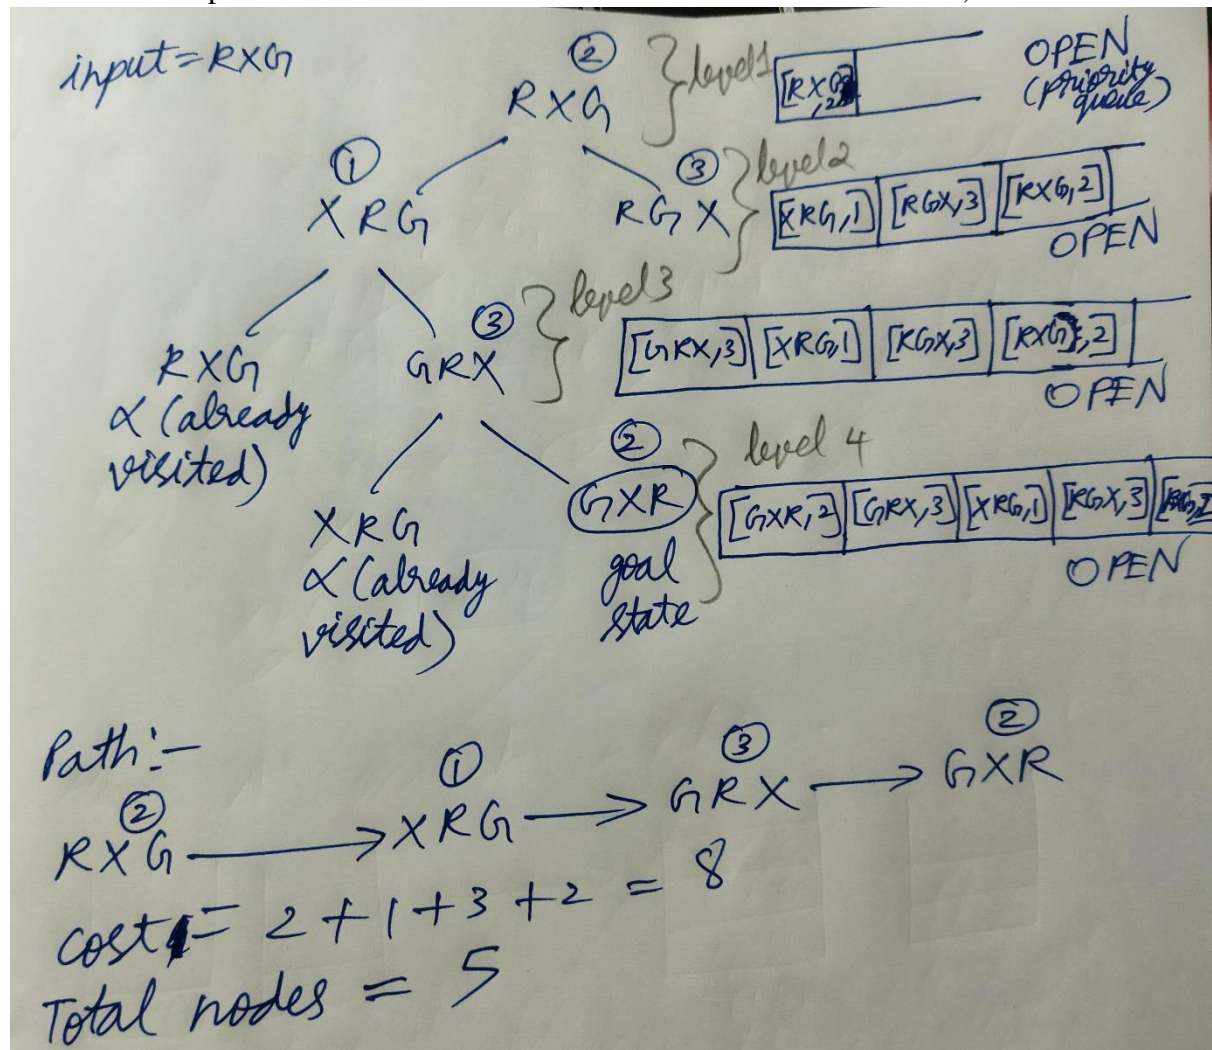 input = RXG
②
RXG
level1
[RXG,2]
OPEN
(priority
queue)
①
XRG
③
RGX
level2
[XRG,1] [RGX,3] [RXG,2]
OPEN
RXG
∝ (already
visited)
③
GRX
level3
[GRX,3] [XRG,1] [RGX,3] [RXG,2]
OPEN
XRG
∝ (already
visited)
②
GXR
goal
state
level 4
[GXR,2] [GRX,3] [XRG,1] [RGX,3]
OPEN
Path:-
② ① ③ ②
RXG → XRG → GRX → GXR
cost = 2 + 1 + 3 + 2 = 8
Total nodes = 5